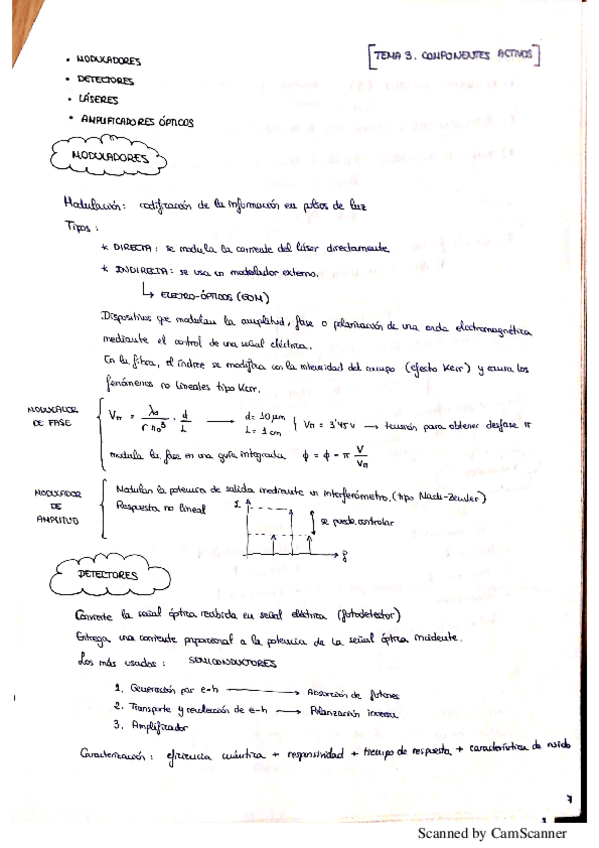 [TEMA 3. COMPONENTES ACTIVOS]
• MODULADORES
• DETECTORES
• LÁSERES
• AMPLIFICADORES ÓPTICOS
MODULADORES
Modulación: codificación de la información en pulsos de luz
Tipos:
* DIRECTA: se modula la corriente del láser directamente
* INDIRECTA: se usa un modulador externo.
↳ ELECTRO-ÓPTICOS (EOM)
Dispositivos que modulan la amplitud, fase o polarización de una onda electromagnética
mediante el control de una señal eléctrica.
En la fibra, el índice se modifica con la intensidad del campo (efecto Kerr) y causa los
fenómenos no lineales tipo Kerr.
MODULADOR DE FASE
Vπ = λ₀ / r n₀³ · d / L → d = 10 μm L = 1 cm { Vπ = 3'45 V → tensión para obtener desfase π
modula la fase en una guía integrada ϕ = ϕ - π V / Vπ
MODULADOR DE AMPLITUD
Modulan la potencia de salida mediante un interferómetro (tipo Mach-Zender)
Respuesta no lineal
I
se puede controlar
f
DETECTORES
Convierte la señal óptica recibida en señal eléctrica (fotodetector)
Entrega una corriente proporcional a la potencia de la señal óptica incidente.
Los más usados: SEMICONDUCTORES
1. Generación par e-h → Absorción de fotones
2. Transporte y recolección de e-h → Polarización inversa
3. Amplificador
Caracterización: eficiencia cuántica + responsividad + tiempo de respuesta + característica de ruido
7
1
Scanned by CamScanner